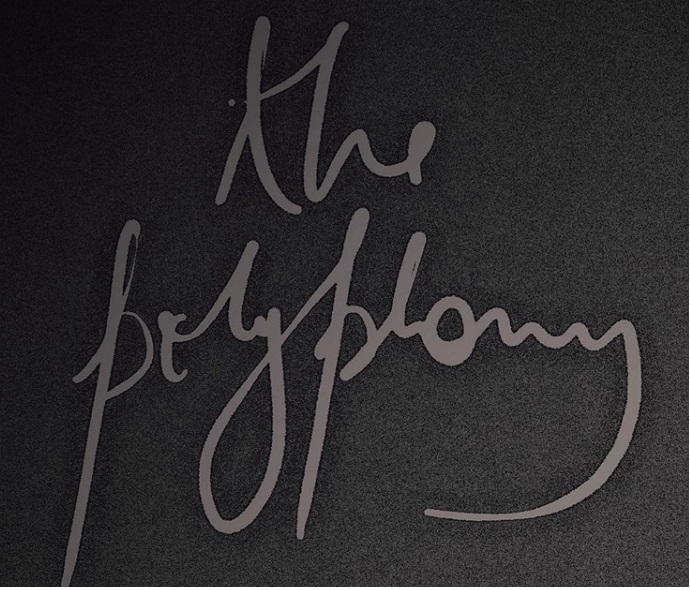 the
polyphony